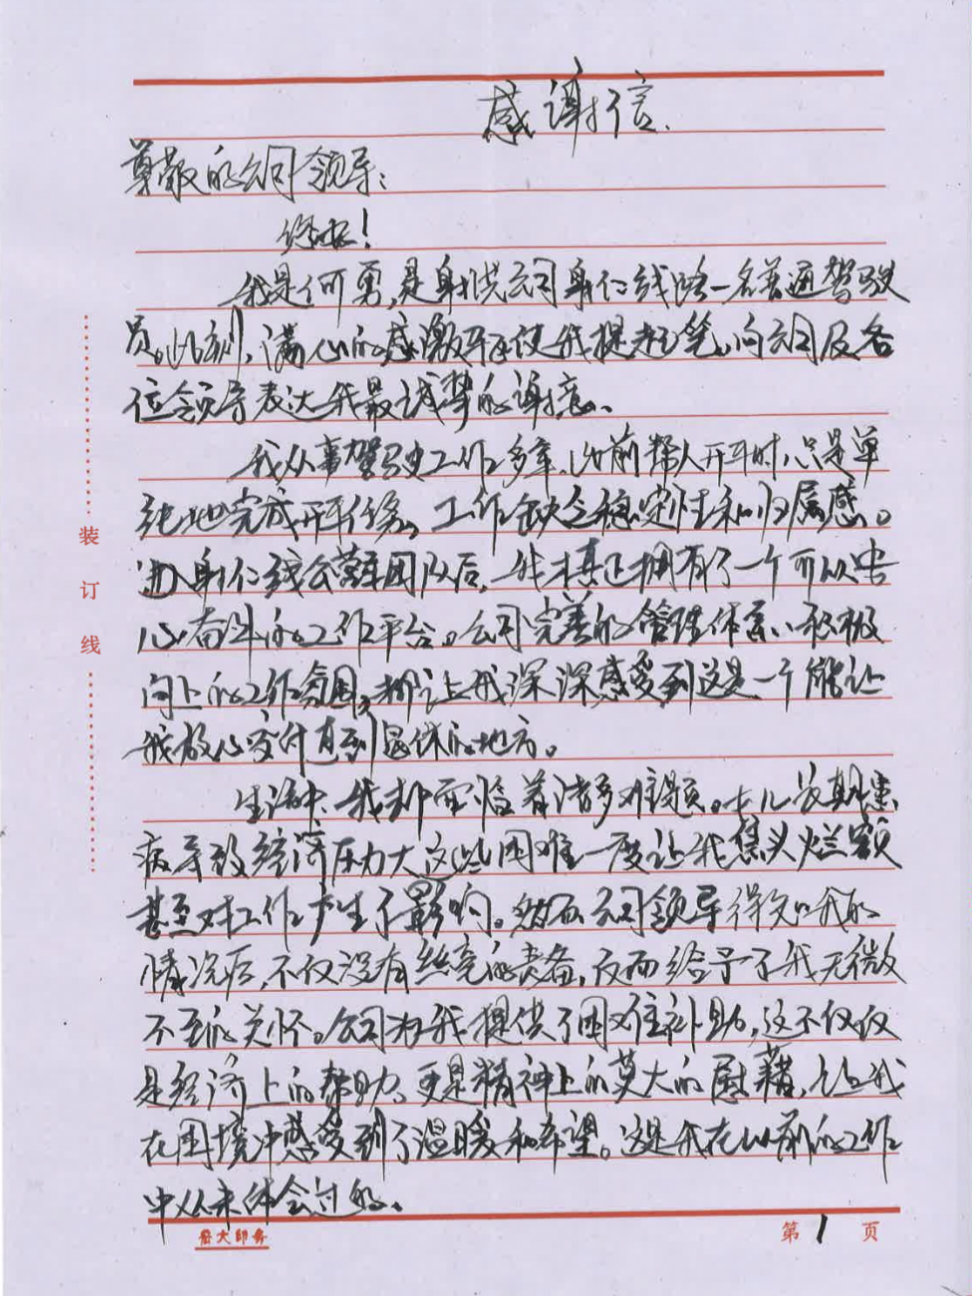 感谢信
尊敬的公司领导：
您好！
我是何勇，是射洪公司射仁线路一名普通驾驶
员。此刻，满心的感激驱使我提起笔，向公司及各
位领导表达我最诚挚的谢意。
我从事驾驶工作多年，以前帮人开车时，只是单
纯地完成开车任务，工作缺乏稳定性和归属感。
进入射仁线公营车团队后，我才真正拥有了一个可以安
心奋斗的工作平台。公司完善的管理体系、积极
向上的工作氛围，都让我深深感受到这是一个能让
我放心交付直到退休的地方。
生活中，我却面临着诸多难题。女儿长期患
病导致经济压力大，这些困难一度让我焦头烂额
甚至对工作产生了影响。然而公司领导得知我的
情况后，不仅没有丝毫的责备，反而给予了我无微
不至的关怀。公司为我提供了困难补助，这不仅仅
是经济上的帮助，更是精神上的莫大的慰藉，让我
在困境中感受到了温暖和希望。这是我在以前的工作
中从未体会过的。
装
订
线
岳大印务
第 1 页